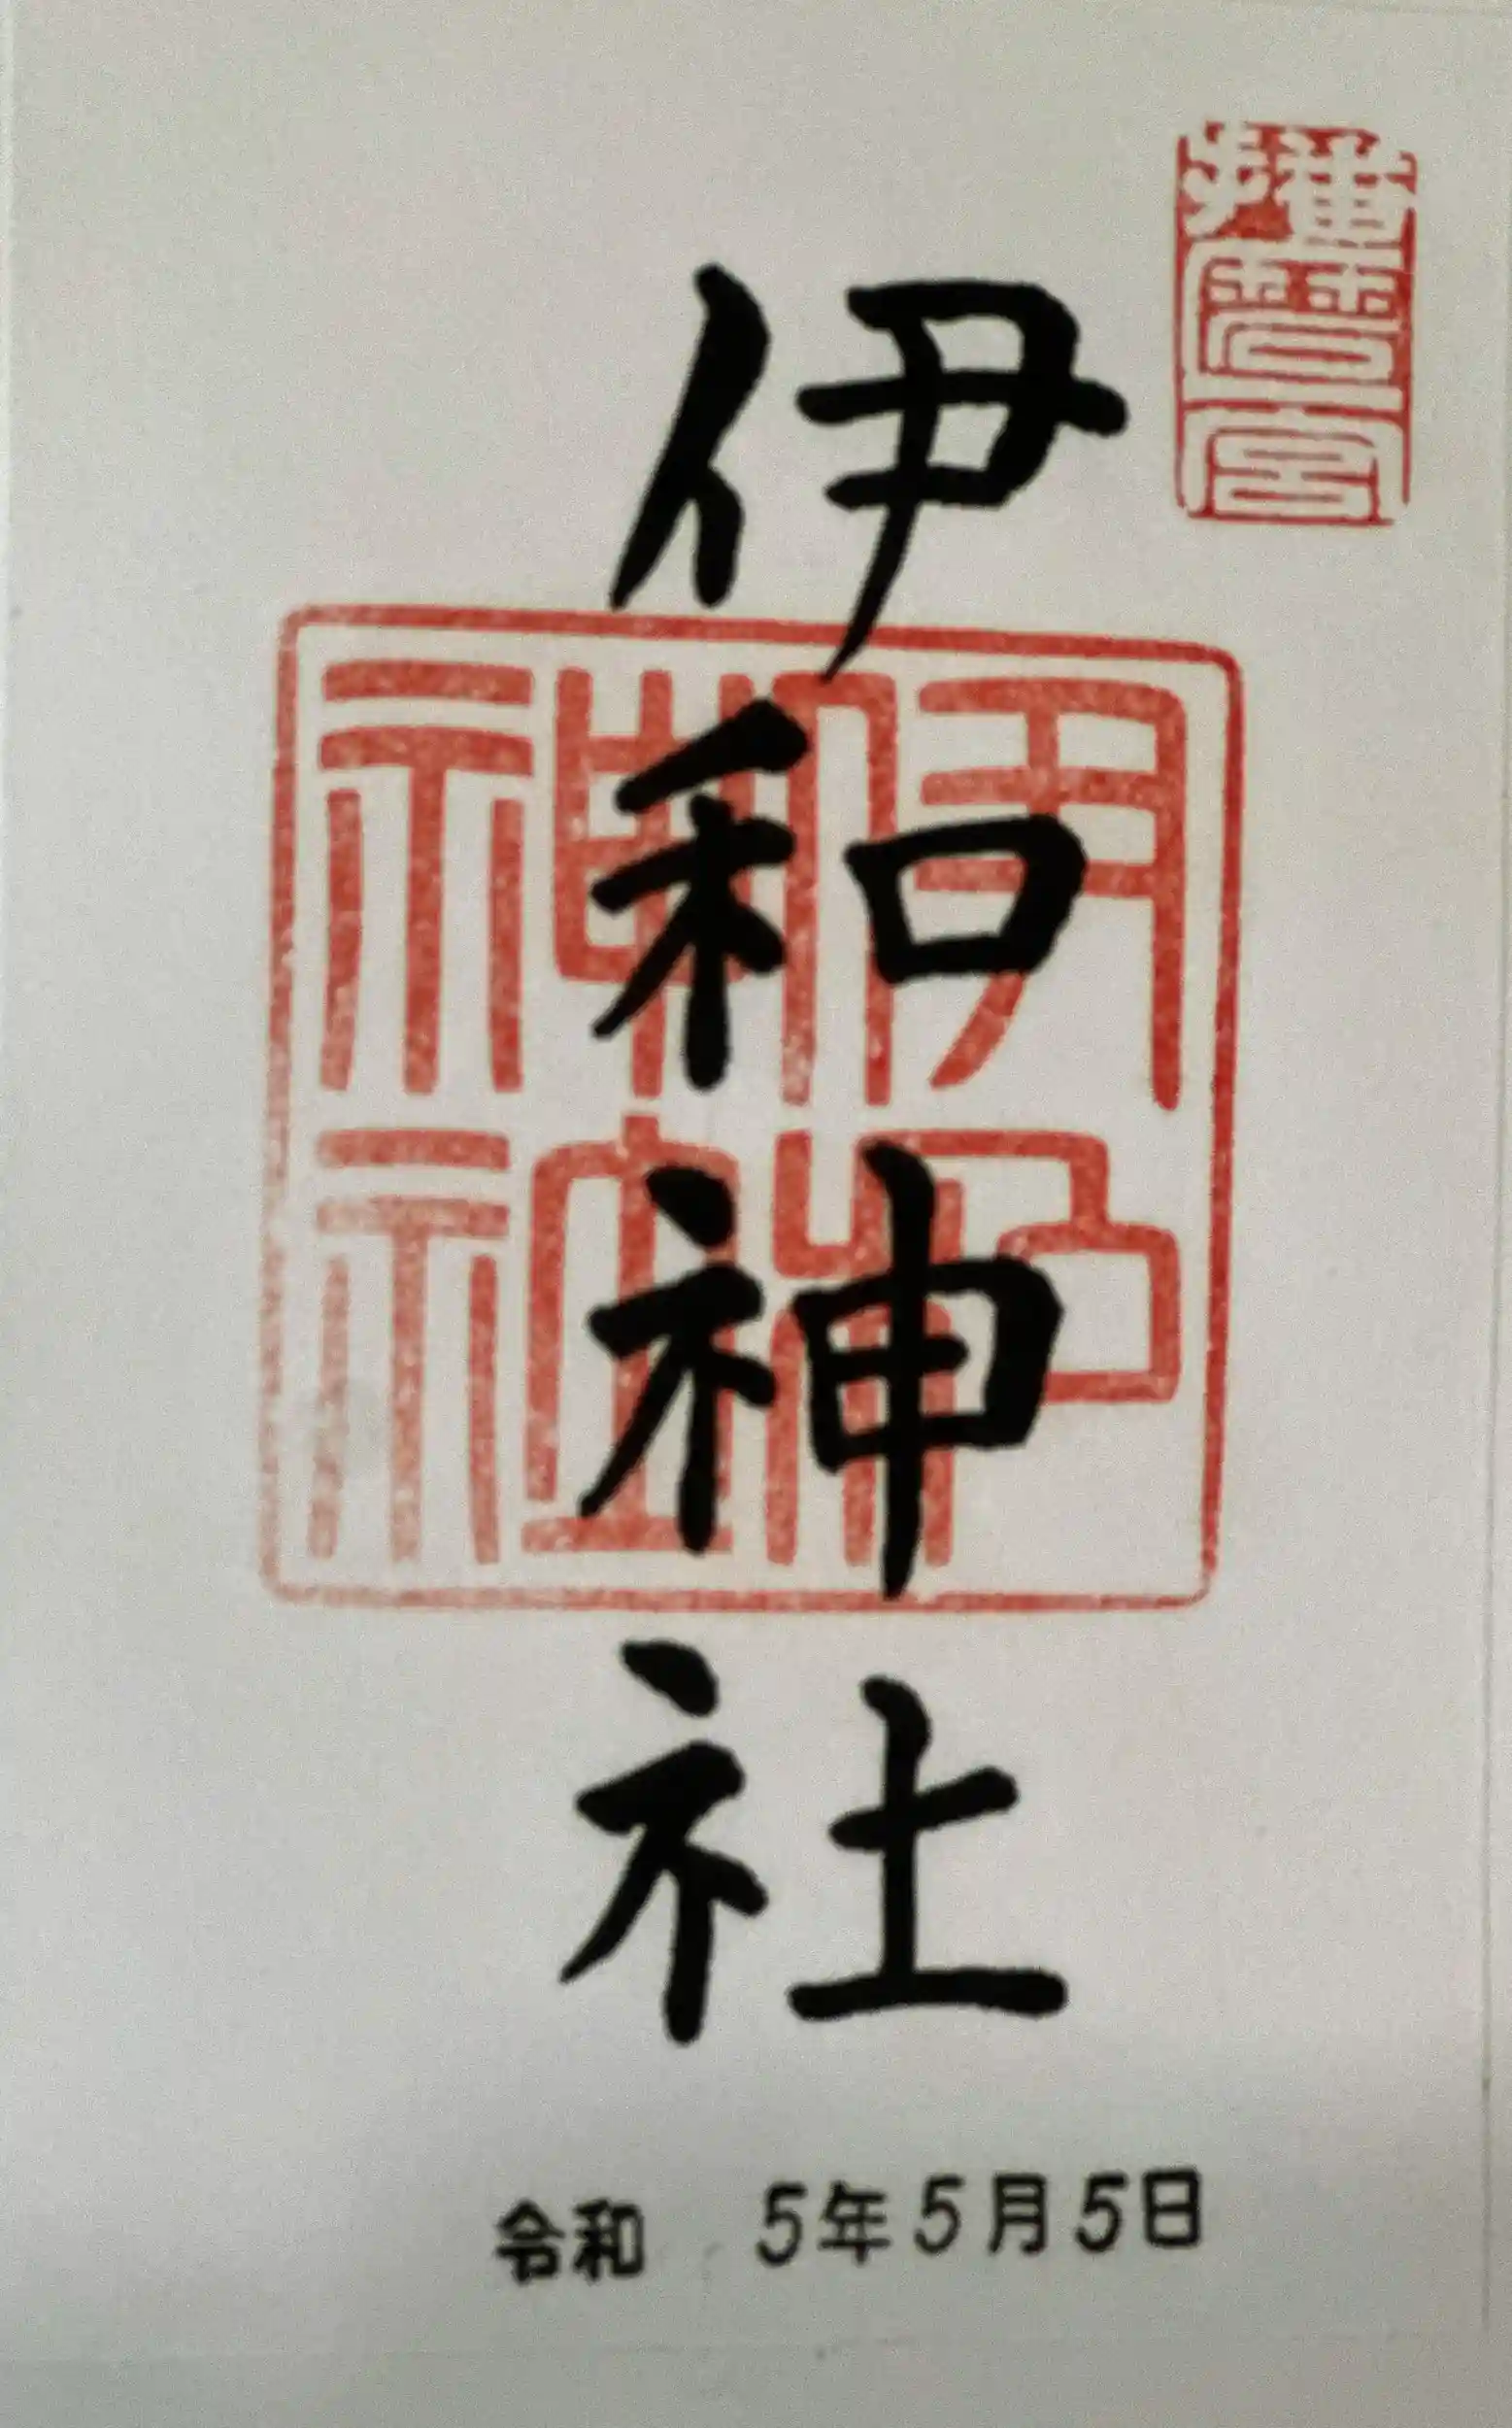 播磨一宮
伊和神社
伊和
神社
令和 5年5月5日